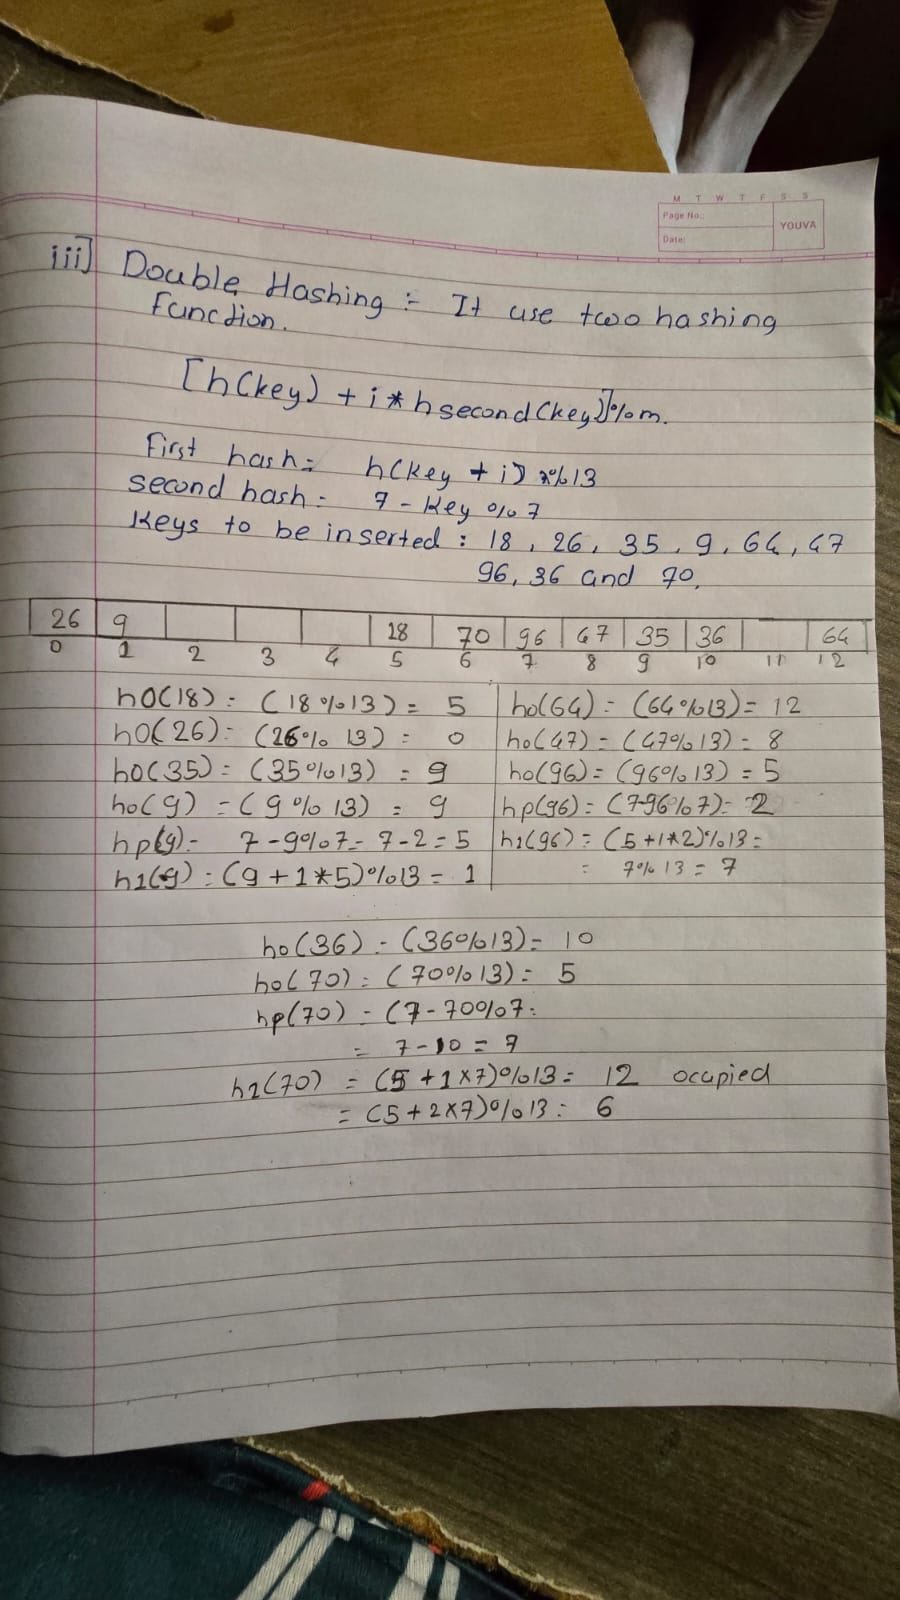 M T W T F S S
Page No.:
YOUVA
Date:
iii] Double Hashing :- It use two hashing
function.
[h(key) + i * h second (key)]%m.
First hash = h(key + i) % 13
second hash = 7 - key % 7
Keys to be inserted : 18, 26, 35, 9, 64, 47
96, 36 and 70.
26 9 18 70 96 47 35 36 64
0 1 2 3 4 5 6 7 8 9 10 11 12
h0(18) = (18%13) = 5 h0(64) = (64%13) = 12
h0(26) = (26% 13) = 0 h0(47) = (47%13) = 8
h0(35) = (35%13) = 9 h0(96) = (96%13) = 5
h0(9) = (9%13) = 9 hp(96) = (7-96%7) = 2
hp(9) = 7-9%7 = 7-2 = 5 h1(96) = (5+1*2)%13 =
h1(9) = (9+1*5)%13 = 1 = 7%13 = 7
h0(36) = (36%13) = 10
h0(70) = (70%13) = 5
hp(70) = (7-70%7 =
= 7-10 = 7
h1(70) = (5+1x7)%13 = 12 ocupied
= (5+2x7)%13 = 6